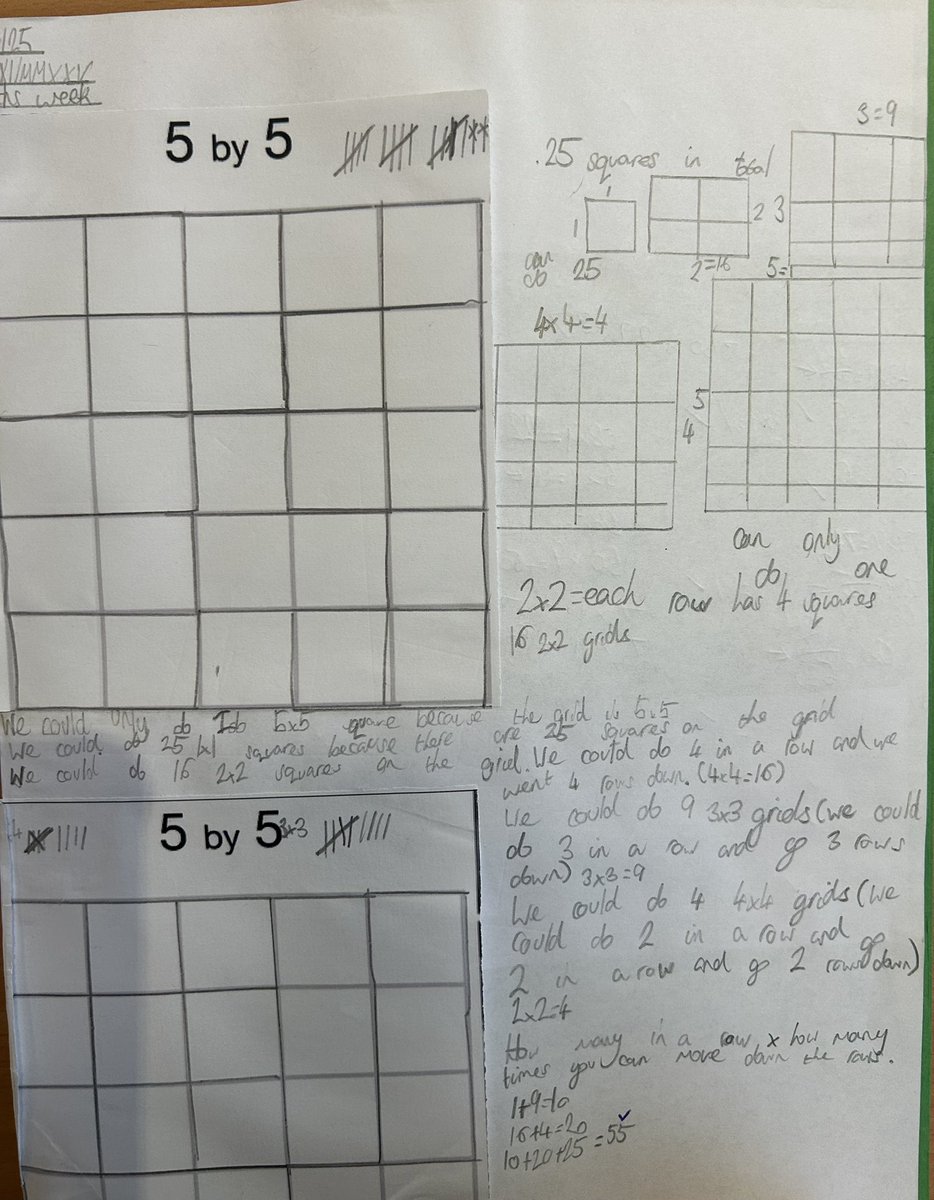 125
XI/MMXXV
his week
5 by 5
.25 squares in total
3=9
1
1
2 3
can do 25
2=16
5=1
4x4=4
5
4
can only
do one
2x2=each row has 4 squares
16 2x2 grids
We could only do 5x5 square because the grid is 5x5
We could do 25 1x1 squares because there are 25 squares on the grid
We could do 16 2x2 squares on the grid. We could do 4 in a row and we
went 4 rows down. (4x4=16)
5 by 5
3x3
We could do 9 3x3 grids (we could
do 3 in a row and go 3 rows
down) 3x3=9
We could do 4 4x4 grids (we
could do 2 in a row and go
2 in a row and go 2 rows down)
2x2=4
How many in a row x how many
times you can move down the rows.
1+9=10
16+4=20
10+20+25=55